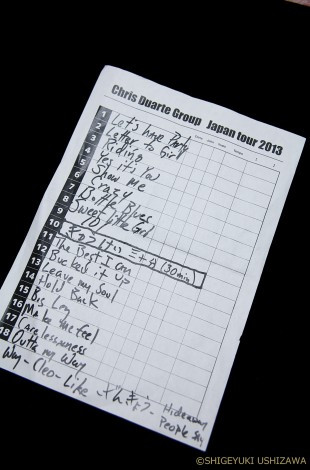 Chris Duarte Group Japan tour 2013
1 Let's have Party
2 Letter to Girl
3 Riding
4 Yes it's You
5 Show me
6 Crazy
7 Bottle Blues
8 Sweet little Girl
9
10 三十分 (30min)
11 The Best I can
12 it up
13 Leave my Soul
14 Hold Back
15 Big Leg
16 Make me Feel
17 Carelessness
18 Outta my way
Way - Cleo - Like - ざんぎょう - Hideaway
People Say
©SHIGEYUKI USHIZAWA